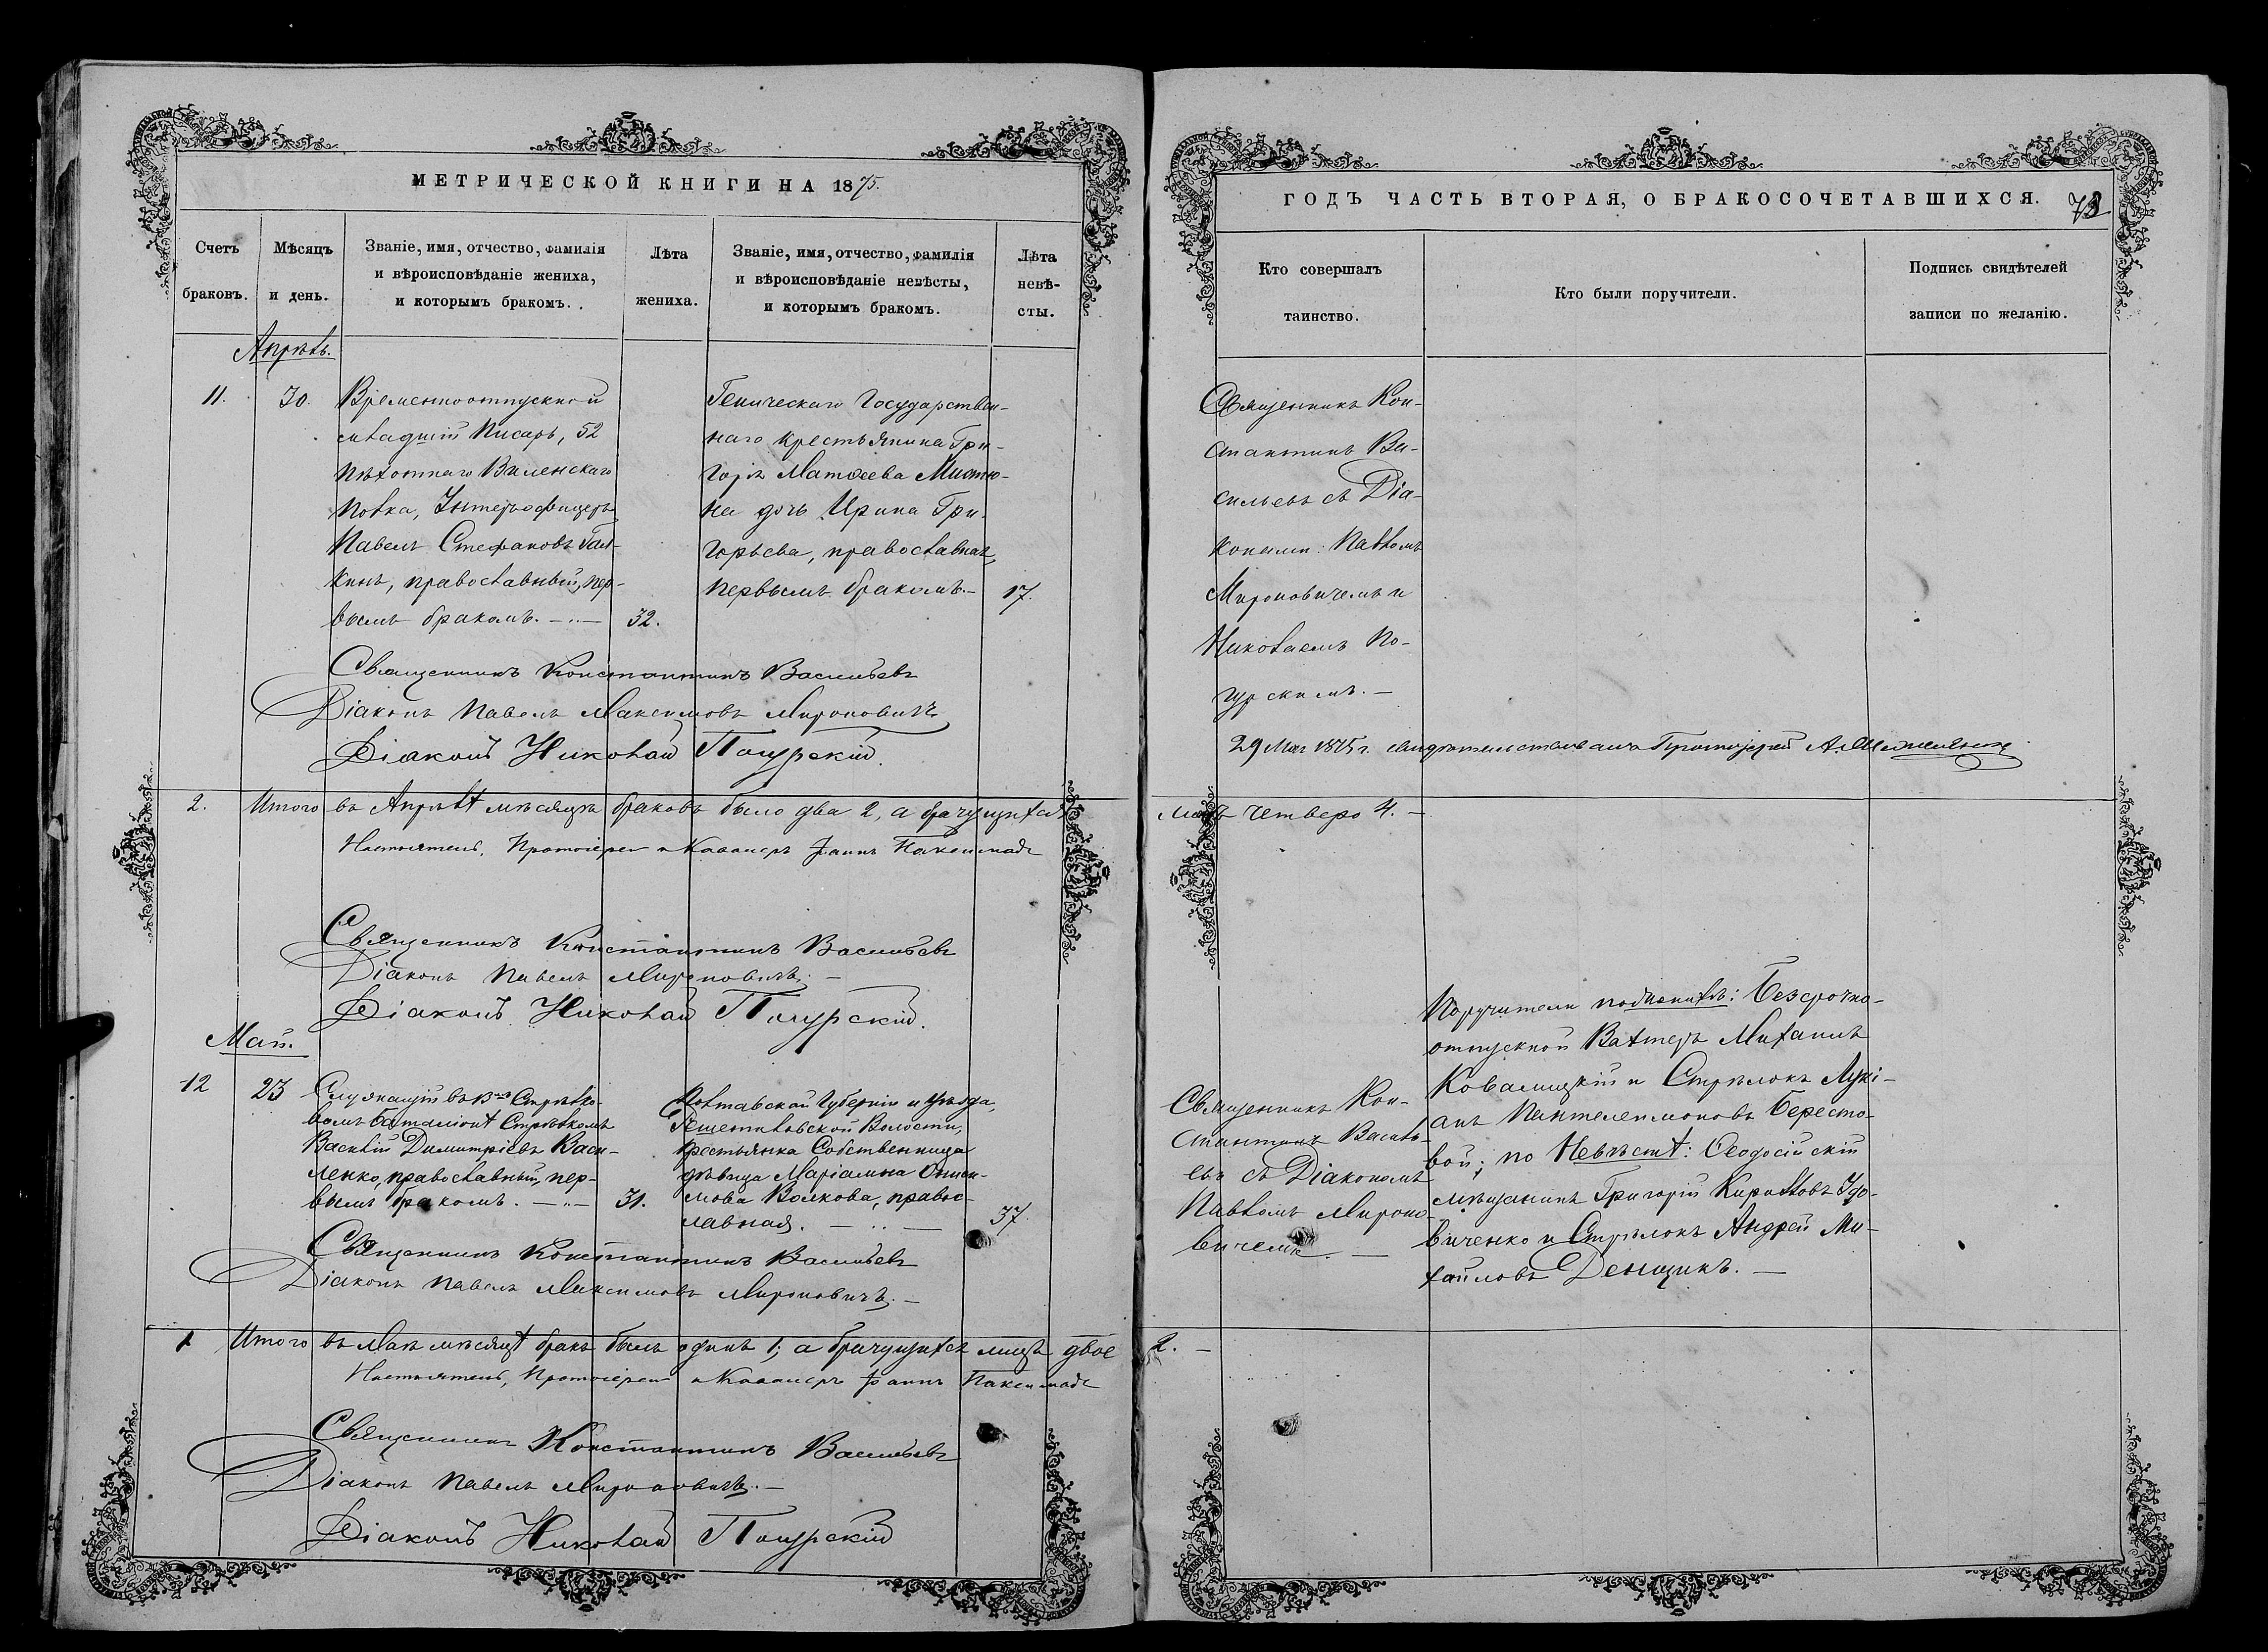 МЕТРИЧЕСКОЙ КНИГИ НА 1875.
Счетъ браковъ.
Мѣсяцъ и день.
Званіе, имя, отчество, фамилія
и вѣроисповѣданіе жениха,
и которымъ бракомъ.
Лѣта
жениха.
Званіе, имя, отчество, фамилія
и вѣроисповѣданіе невѣсты,
и которымъ бракомъ.
Лѣта
невѣ-
сты.
Апрѣль.
11.
30.
Временноотпускной
младшій Писарь, 52
пѣхотнаго Виленскаго
полка, Унтеръ-офицеръ
Павелъ Стефановъ
кинъ, православный, пер-
вымъ бракомъ.
32.
Геническаго Государствен-
наго крестьянина Гри-
горія Матѳеева
на дочь Ирина Гри-
горьева, православная,
первымъ бракомъ.
17.
Священникъ Константинъ Васильевъ
Діаконъ Павелъ Максимовъ Мироновичъ
Діаконъ Николай Погурскій.
2. Итого въ Апрѣлѣ мѣсяцѣ браковъ было два 2, а брачущихся
Настоятель, Протоіерей и Кавалеръ Іоаннъ
Священникъ Константинъ Васильевъ
Діаконъ Павелъ Мироновичъ.
Діаконъ Николай Погурскій.
Май.
12
23
Служащій въ В Стрѣлко-
вомъ баталіонѣ Стрѣлкомъ
Василій Димитріевъ Васи-
ленко, православный, пер-
вымъ бракомъ.
31.
Полтавской Губерніи и уѣзда,
Решетиловской Волости,
Крестьянка Собственница
дѣвица МаріамнаОниси-
мова Волкова, правос-
лавная.
37.
Священникъ Константинъ Васильевъ
Діаконъ Павелъ Максимовъ Мироновичъ.
1 Итого въ Маѣ мѣсяцѣ бракъ былъ одинъ 1; а брачущихся лицъ двое
Настоятель, Протоіерей и Кавалеръ Іоаннъ
Священникъ Константинъ Васильевъ
Діаконъ Павелъ Мироновичъ.
Діаконъ Николай Погурскій
ГОДЪ ЧАСТЬ ВТОРАЯ, О БРАКОСОЧЕТАВШИХСЯ.
Кто совершалъ
таинство.
Кто были поручители.
Подпись свидѣтелей
записи по желанію.
Священникъ Кон-
стантинъ Ва-
сильевъ съ Діа-
конами: Павломъ
Мироновичемъ и
Николаемъ По-
гурскимъ.
29 Мая 1875 г. свидѣтельствовалъ Протоіерей А.
лицъ четверо 4.
Священникъ Кон-
стантинъ Василь-
евъ съ Діакономъ
Павломъ Мироно-
вичемъ.
Поручители по женихѣ: Безсрочно-
отпускной Вахтеръ Михаилъ
Ковалицкій и Стрѣлокъ Лукі-
анъ Пантелеимоновъ Бересто-
вой; по Невѣстѣ: Ѳеодосійскій
мѣщанинъ Григорій Кирилловъ Удо-
виченко и Стрѣлокъ Андрей Ми-
хайловъ Денщикъ.
2.